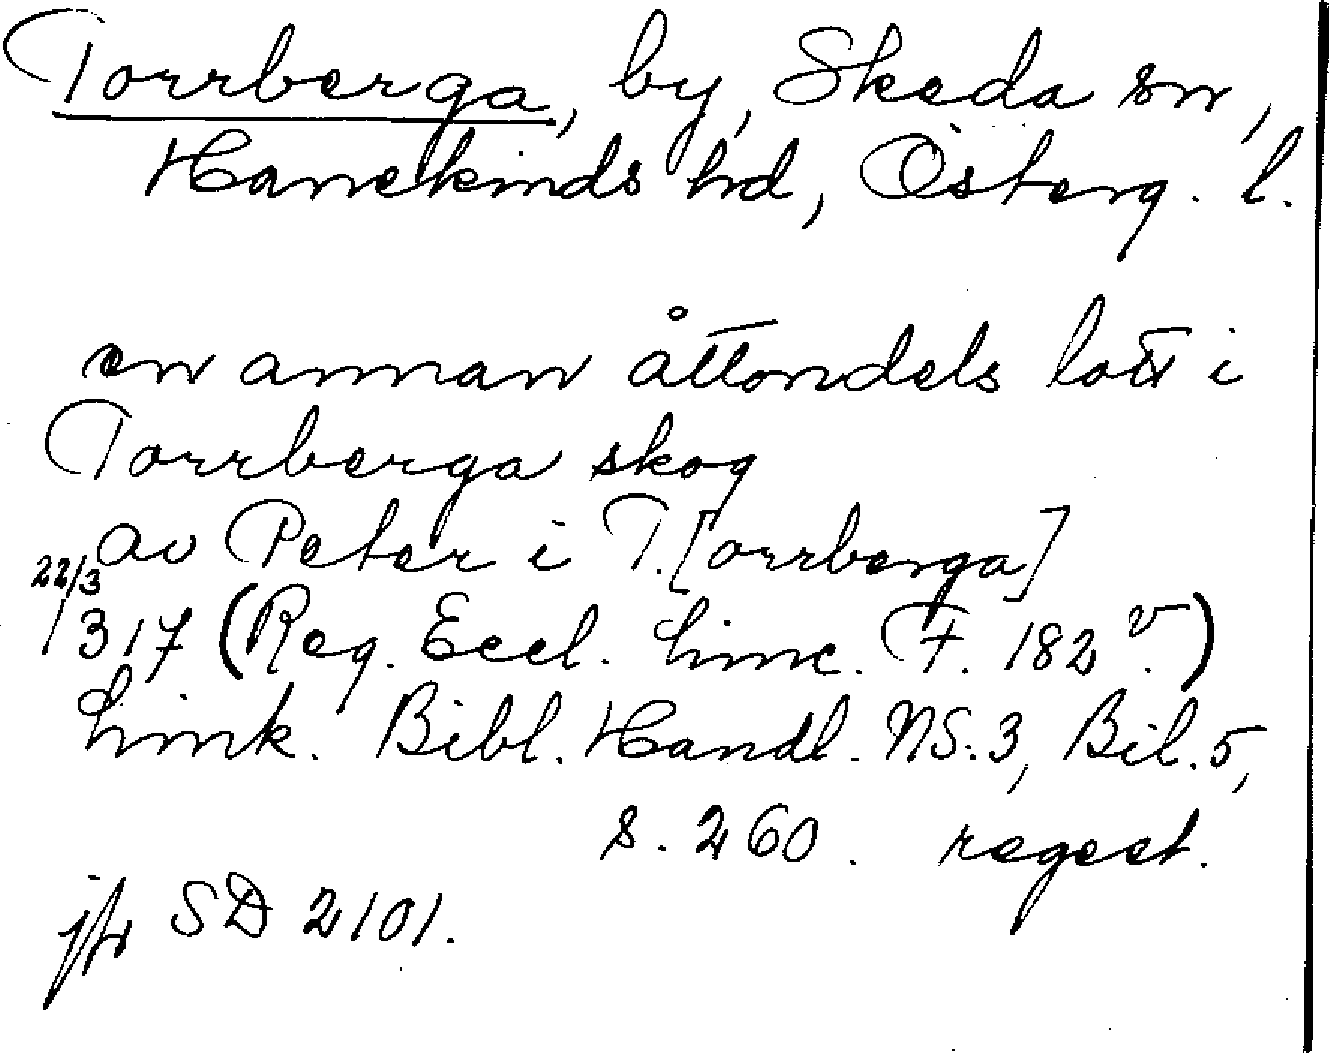 Torrberga, by, Skeda sn,
Hanekinds hd, Österg. l.
en annan åttondels lott i
Torrberga skog
av Peter i T.[orrberga]
22/3
1317 (Reg. Eccl. Linc. F. 182 v.)
Link. Bibl. Handl. NS.3, Bil.5,
s. 260. regest.
jfr SD 2101.